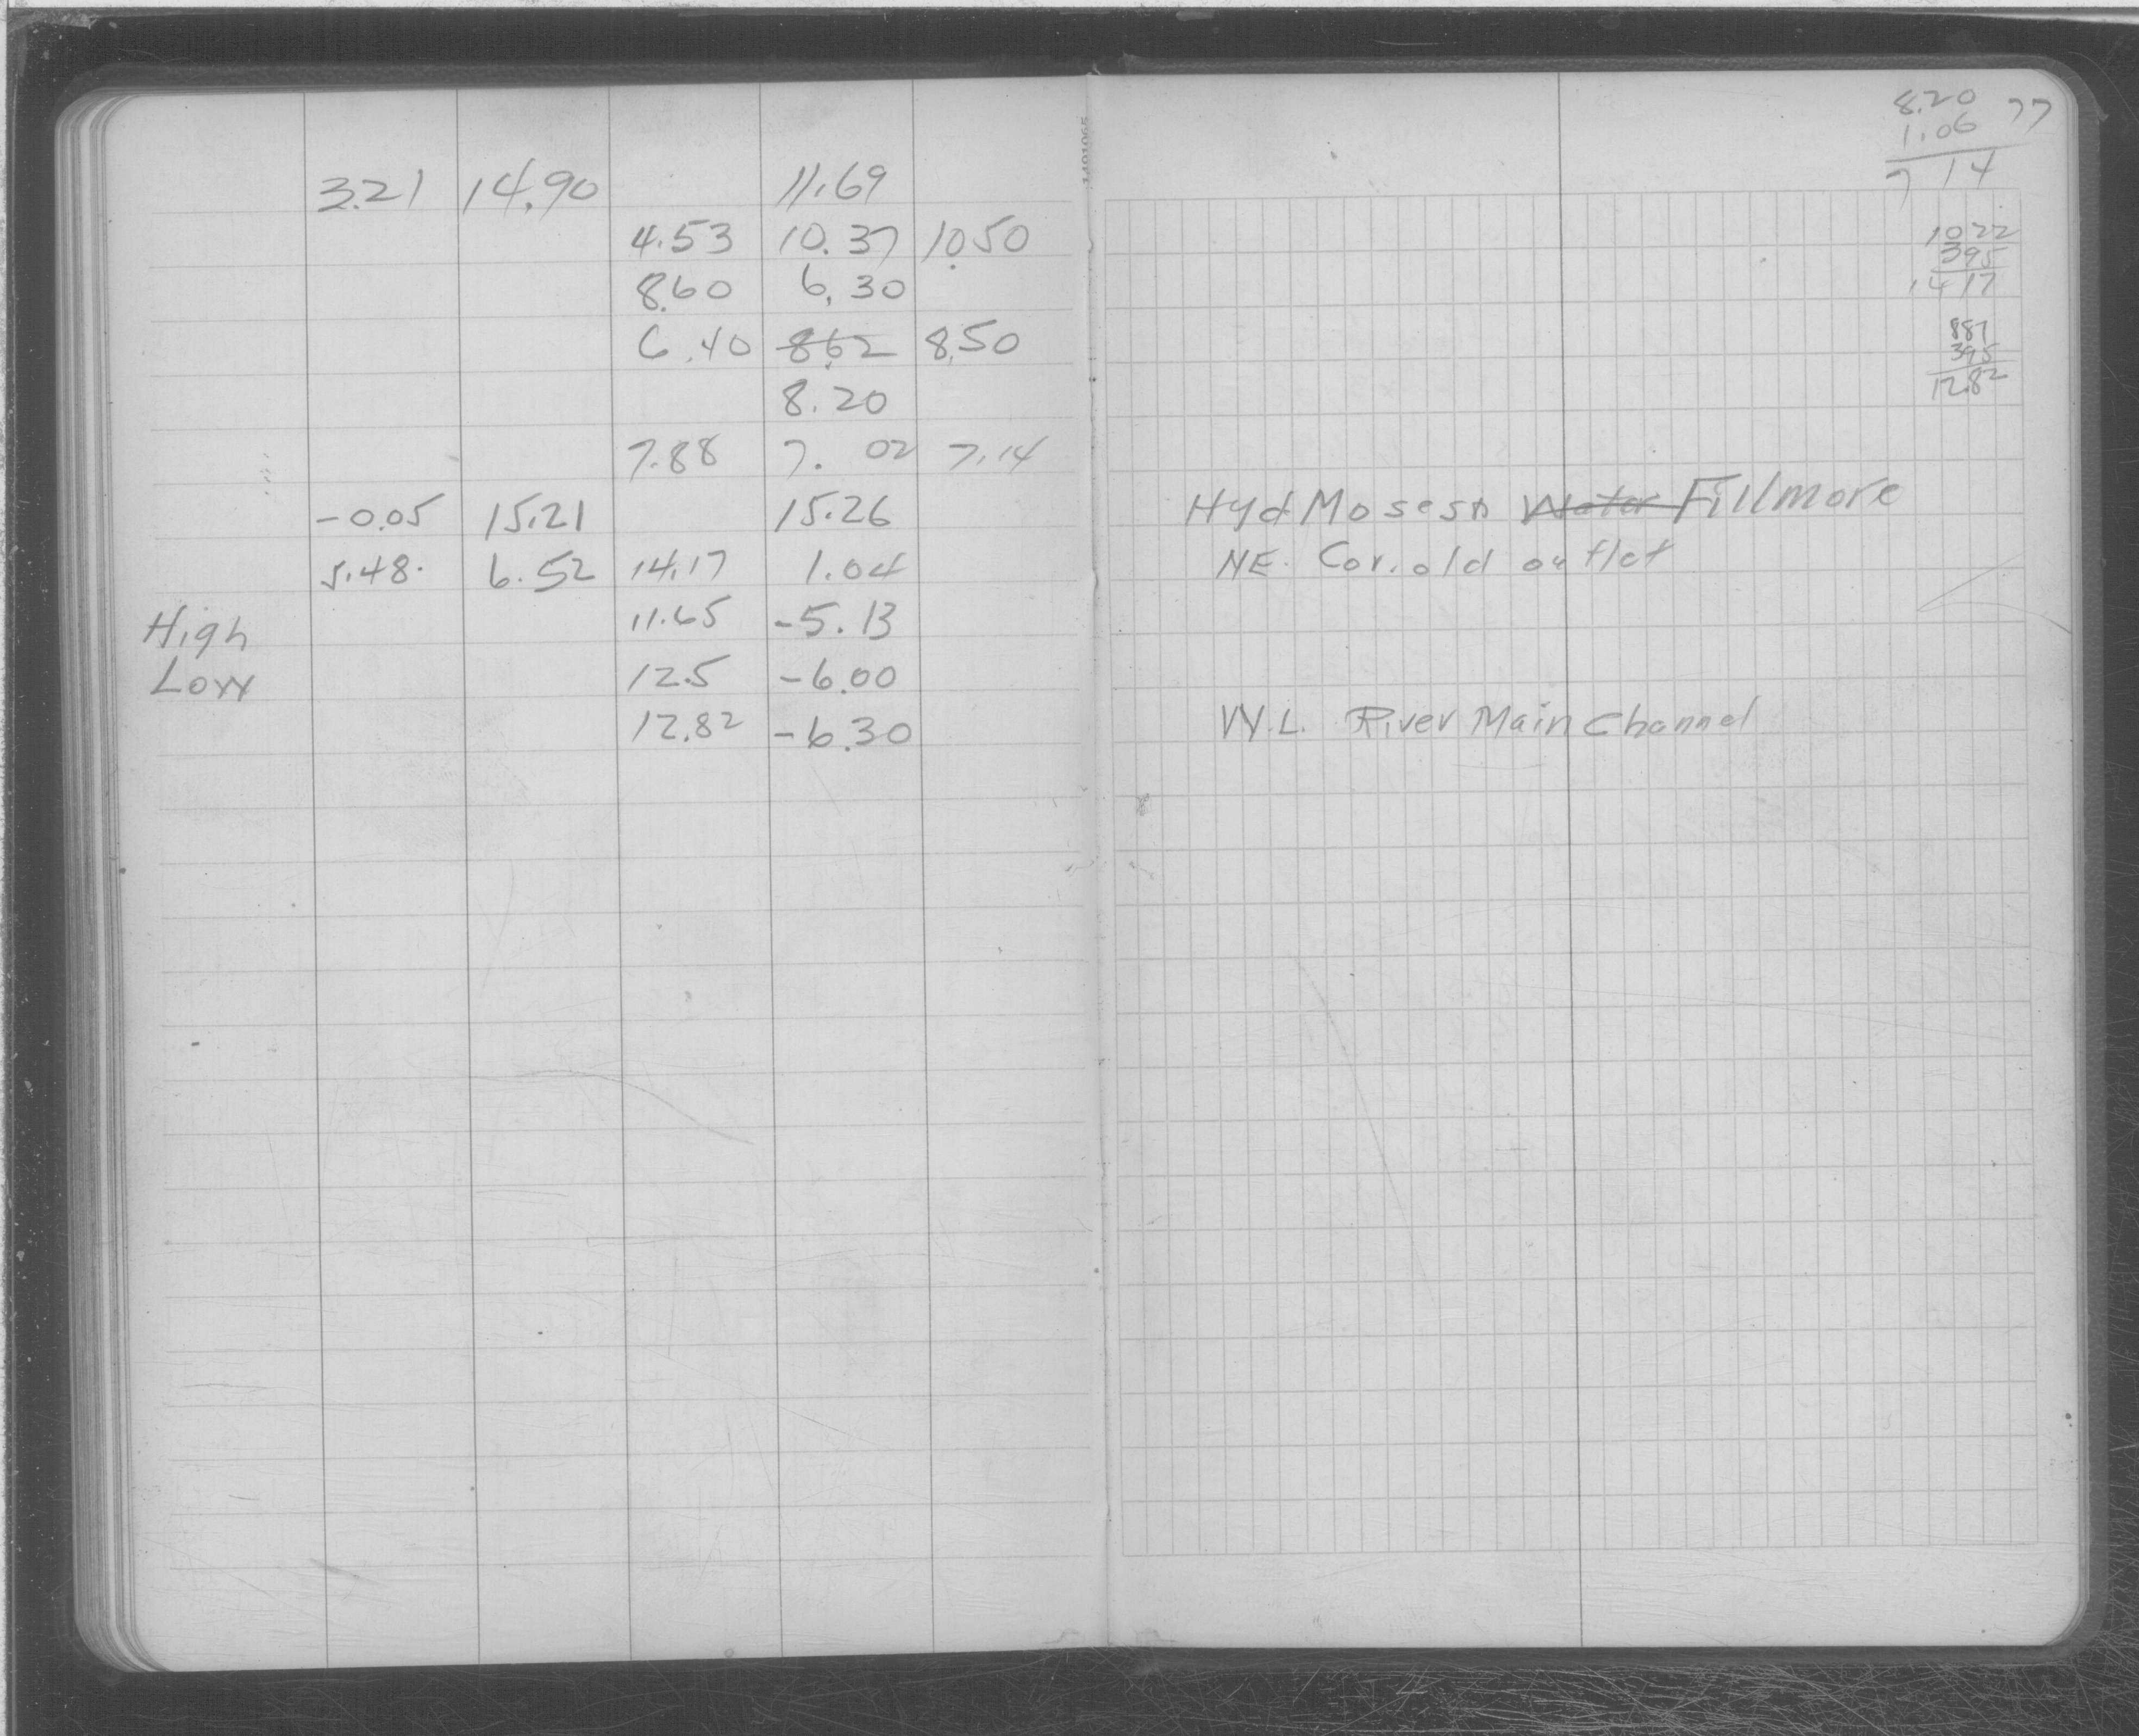 3.21 14.90 11.69
4.53 10.37 10.50
8.60 6.30
6.40 8.62 8.50
8.20
7.88 7.02 7.14
-0.05 15.21 15.26
5.48. 6.52 14.17 1.04
High 11.65 -5.13
Low 12.5 -6.00
12.82 -6.30
77
8.20
1.06
7 14
1022
395
1417
887
395
12.82
Hyd Moses Water Fillmore
NE. Cor. old outlet
W.L. River Main Channel